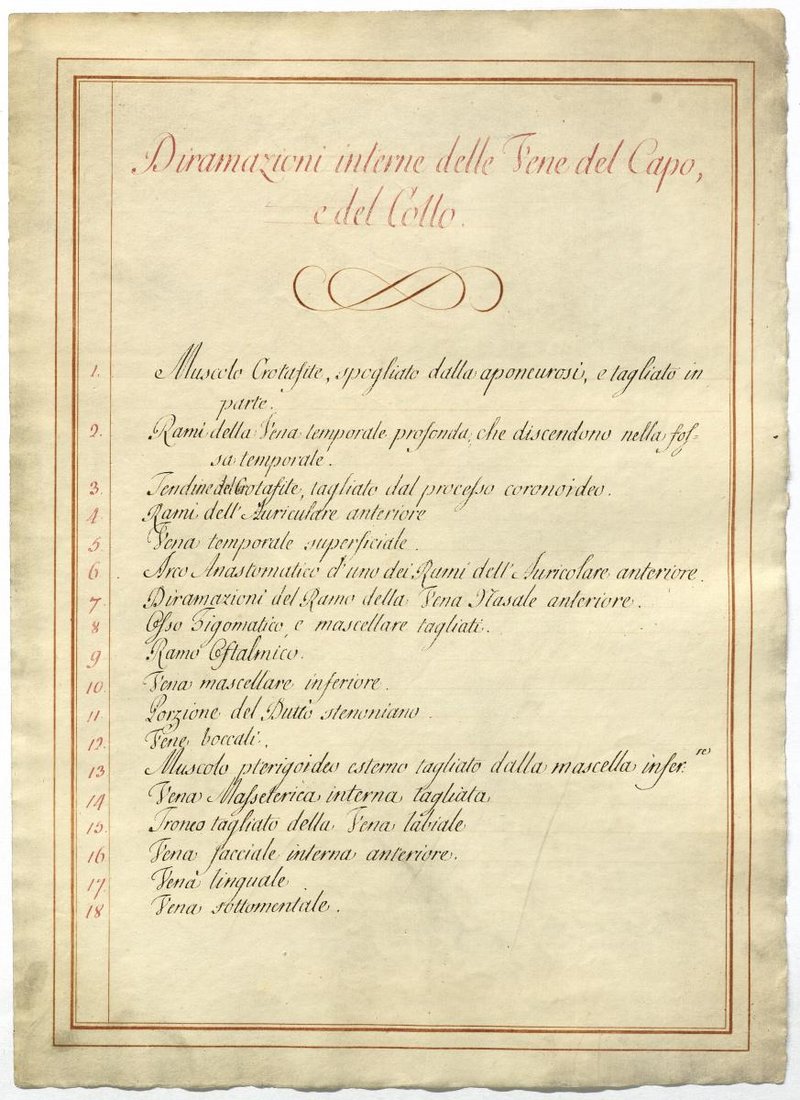 Diramazioni interne delle Vene del Capo,
e del Collo.
1. Muscolo Crotafite, spogliato dalla aponeurosi, e tagliato in
parte.
2. Rami della Vena temporale profonda, che discendono nella fos=
sa temporale.
3. Tendine del Crotafite, tagliato dal processo coronoideo.
4. Rami dell'Auriculare anteriore
5 Vena temporale superficiale.
6 Arco Anastomatico d'uno dei Rami dell'Auricolare anteriore.
7. Diramazioni del Ramo della Vena Nasale anteriore.
8 Osso Zigomatico, e mascellare tagliati.
9 Ramo Oftalmico.
10 Vena mascellare inferiore.
11 Porzione del Dutto stenoniano.
12. Vene boccali.
13 Muscolo pterigoideo esterno tagliato dalla mascella infer.re
14 Vena Masseterica interna tagliata
15. Tronco tagliato della Vena labiale
16 Vena facciale interna anteriore.
17 Vena linguale
18 Vena sottomentale.